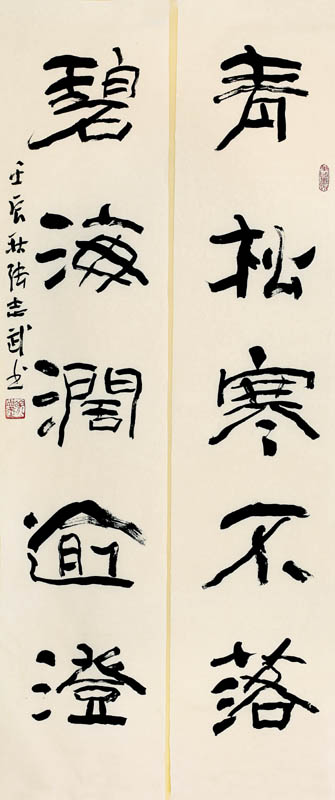 青松寒不落
碧海濶逾澄
壬辰秋張志武书